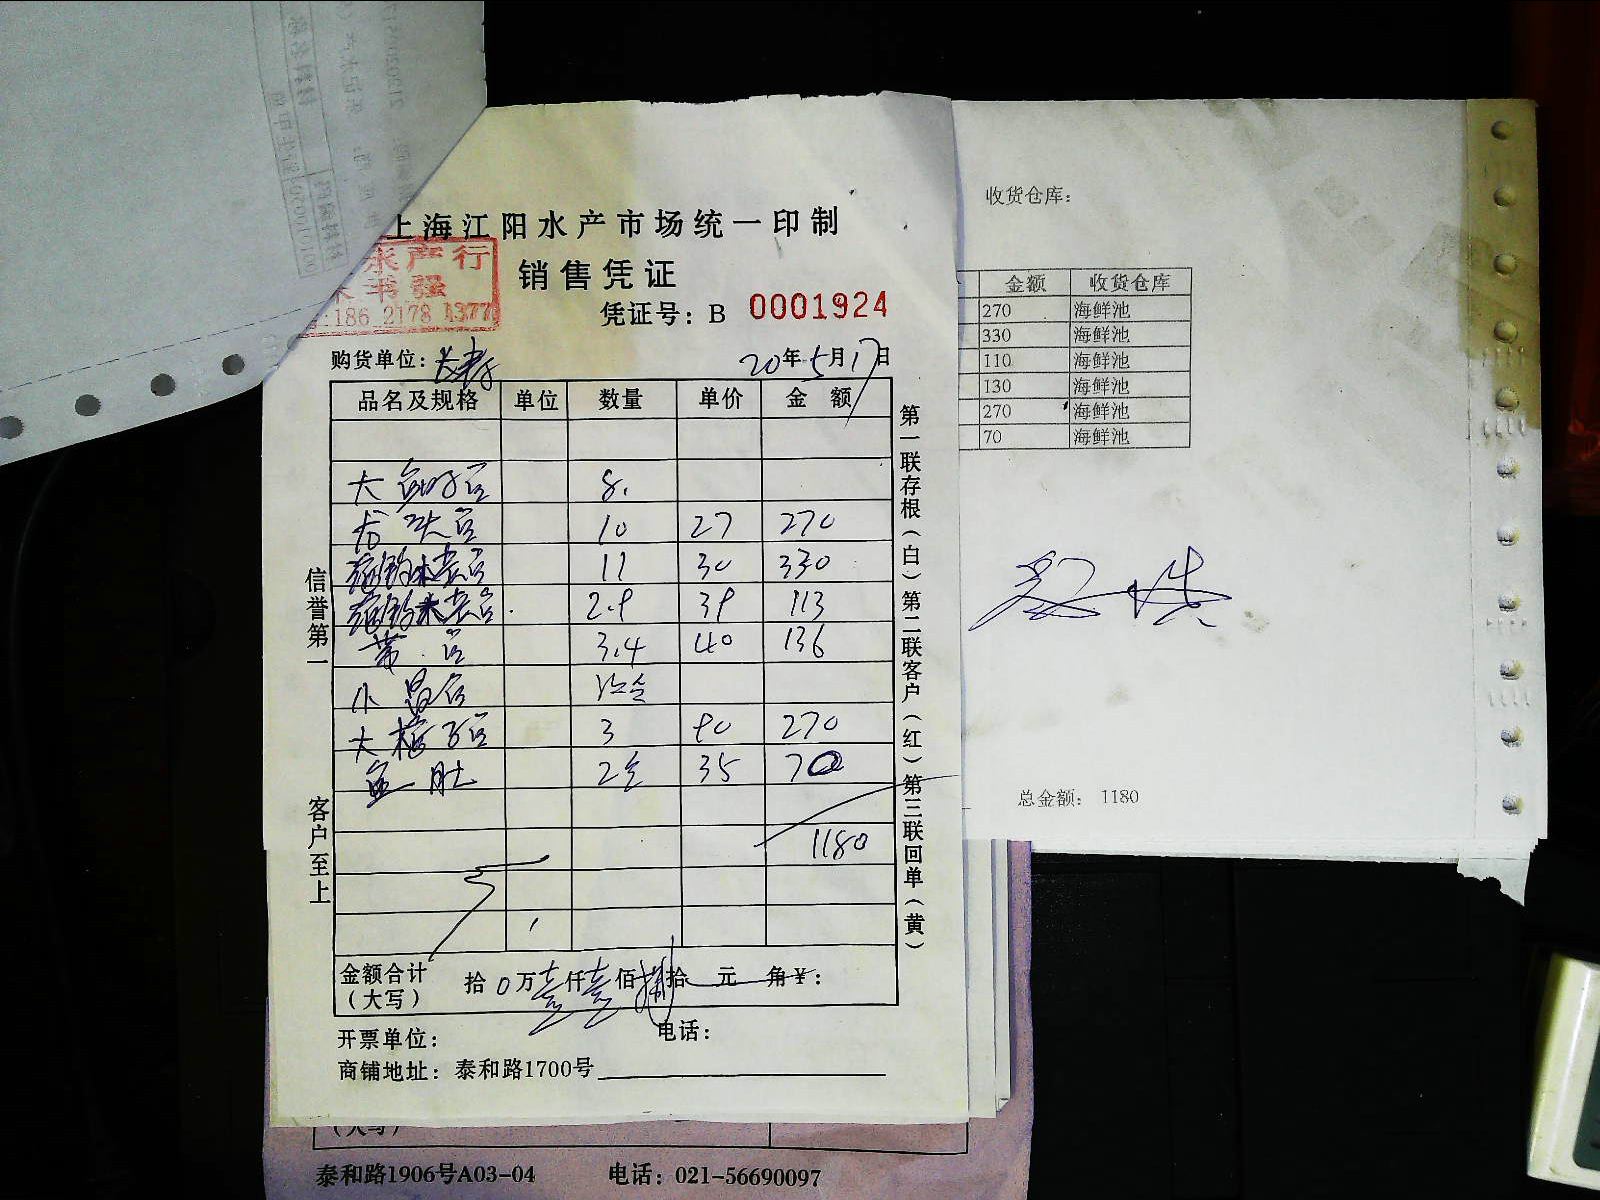 上海江阳水产市场统一印制
水产行
书强
186 2178 1377
销售凭证
凭证号：B 0001924
购货单位：
20年5月17日
品名及规格 单位 数量 单价 金额
大 8.
龙头鱼 10 27 270
11 30 330
2.9 39 113
带鱼 3.4 40 136
小
大 3 90 270
鱼肚 2 35 70
1180
金额合计（大写） 拾0万壹仟壹佰捌拾 元 角￥：
开票单位： 电话：
商铺地址：泰和路1700号
信誉第一
客户至上
第一联存根（白）第二联客户（红）第三联回单（黄）
收货仓库：
金额 收货仓库
270 海鲜池
330 海鲜池
110 海鲜池
130 海鲜池
270 海鲜池
70 海鲜池
总金额： 1180
（大写）
泰和路1906号A03-04 电话：021-56690097